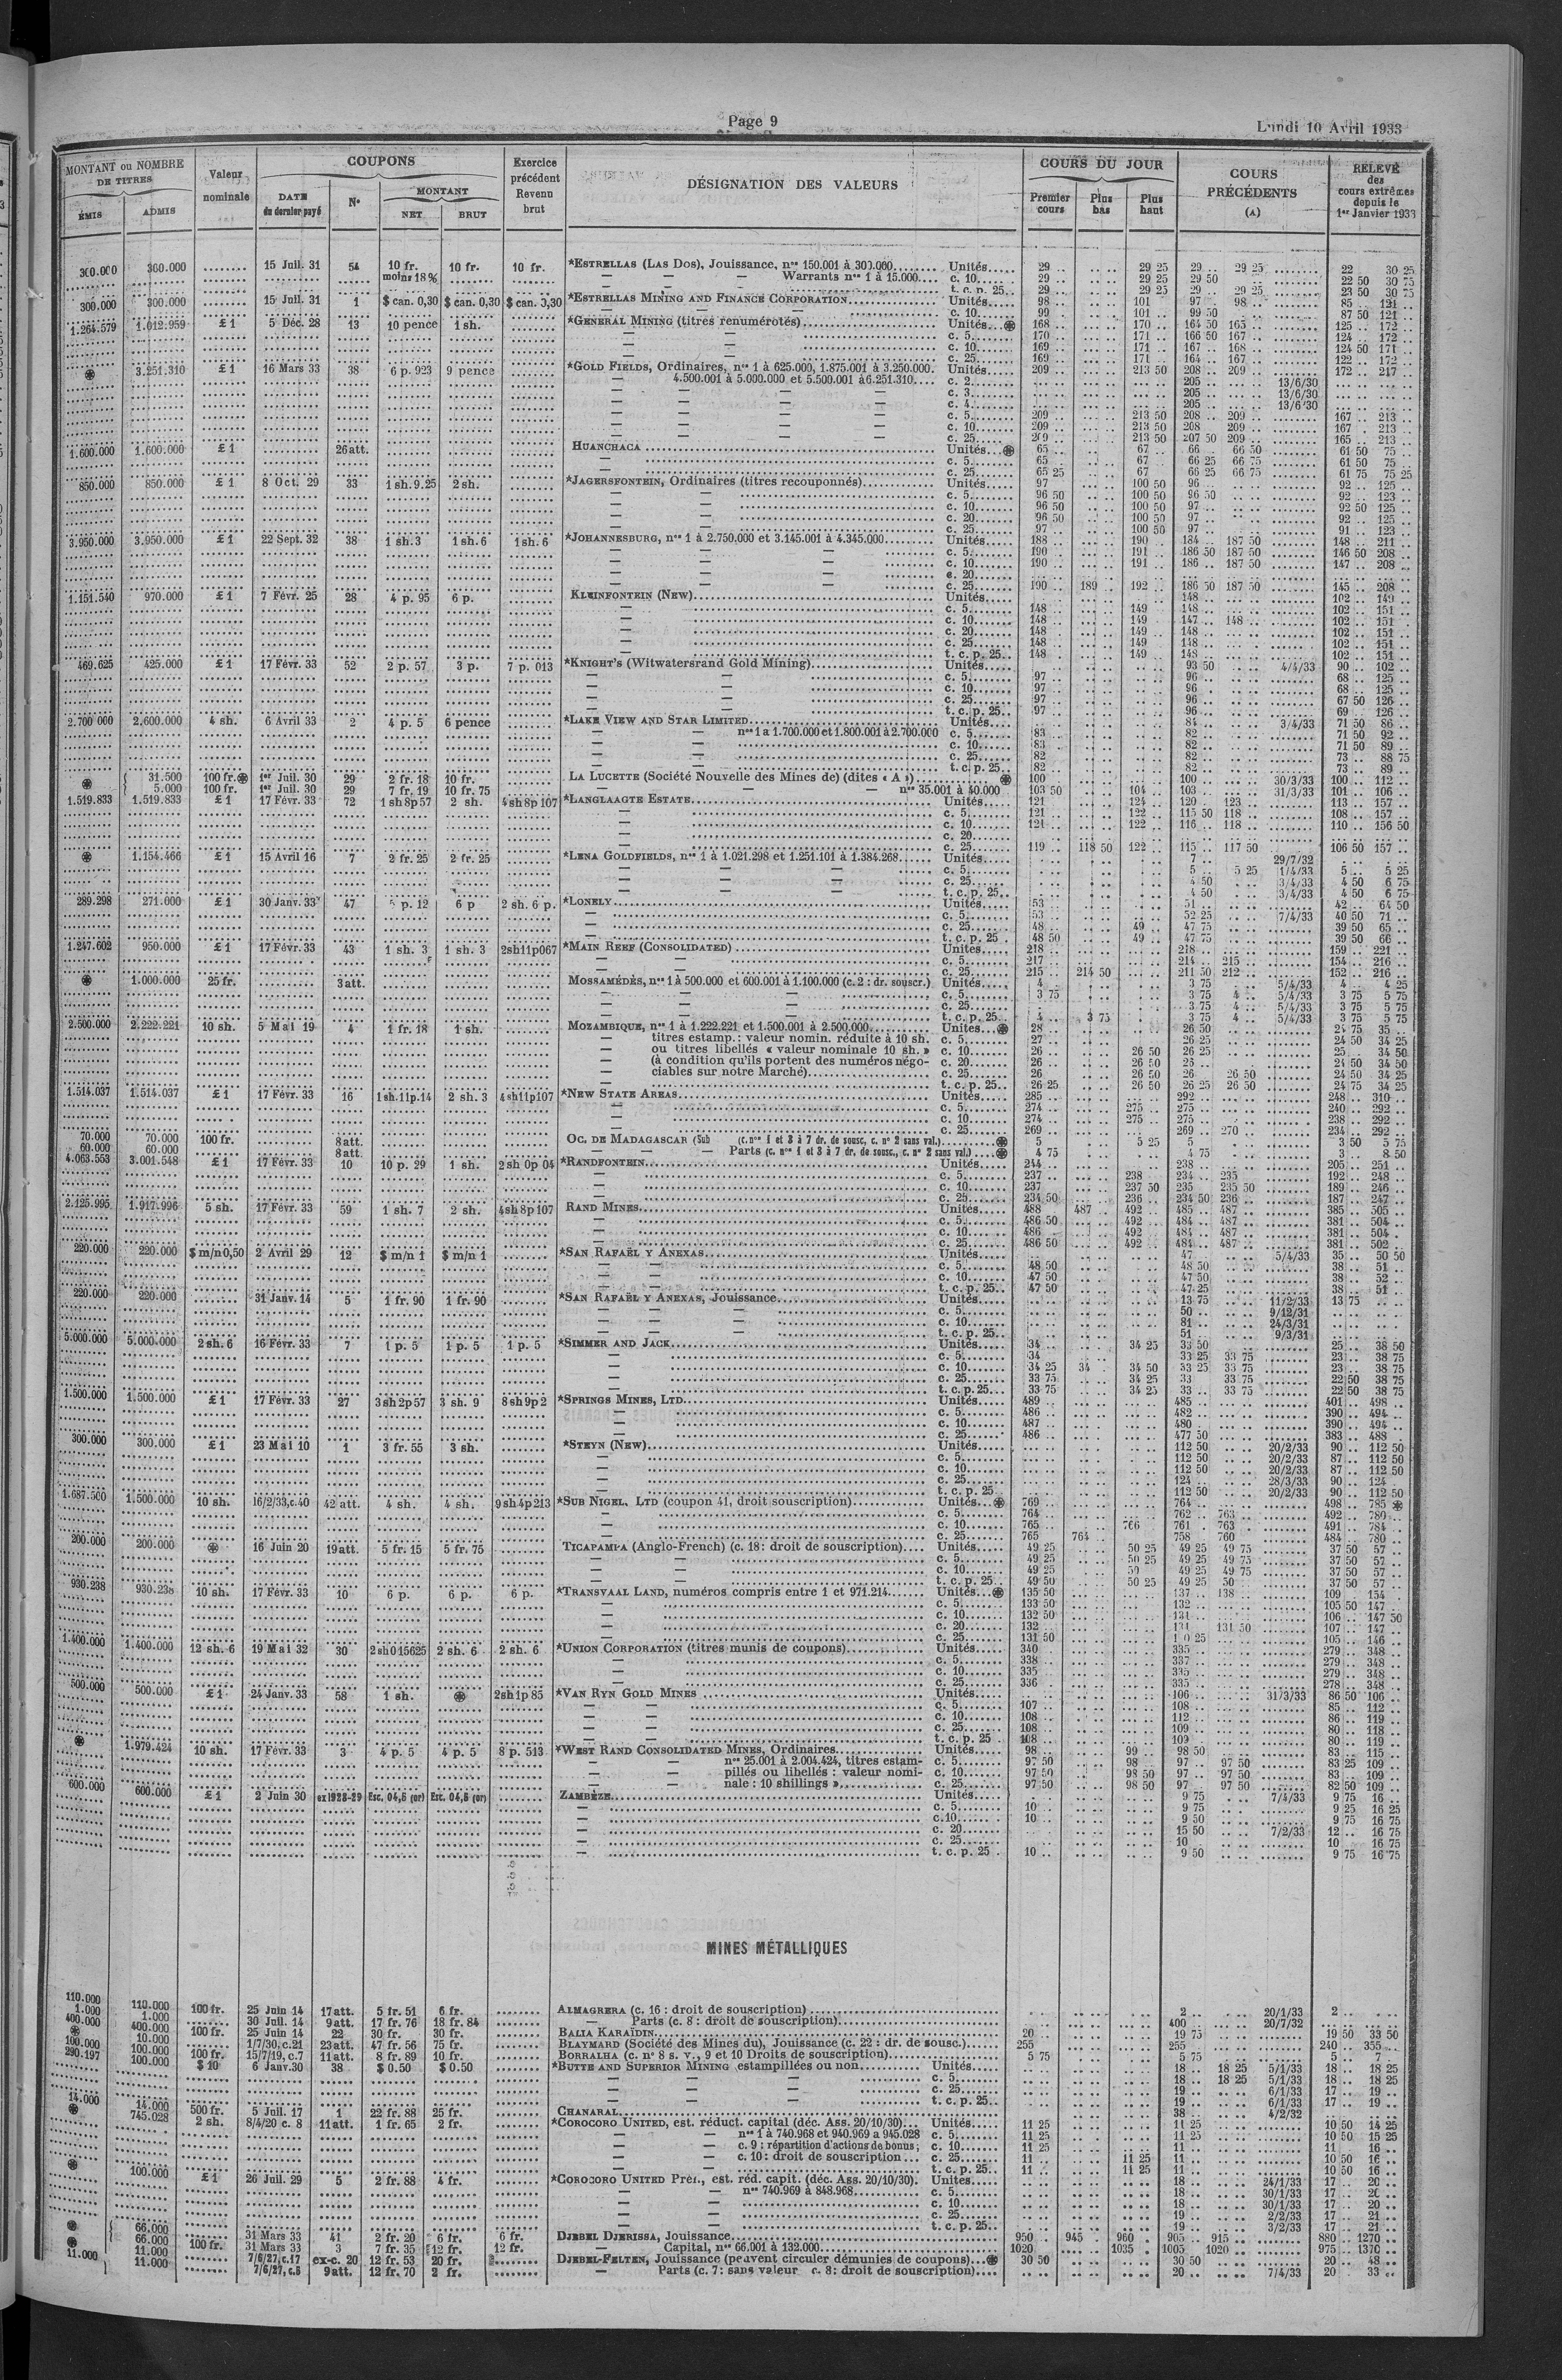 Page 9
Lundi 10 Avril 1933
MONTANT ou NOMBRE DE TITRES
ÉMIS
ADMIS
Valeur nominale
COUPONS
DATE du dernier payé
N°
MONTANT
NET
BRUT
Exercice précédent Revenu brut
DÉSIGNATION DES VALEURS
COURS DU JOUR
Premier cours
Plus bas
Plus haut
COURS PRÉCÉDENTS (A)
RELEVÉ des cours extrêmes depuis le 1er Janvier 1933
300.000 360.000 15 Juil. 31 54 10 fr. moins 18% 10 fr. 10 fr. *ESTRELLAS (LAS DOS), Jouissance, nos 150.001 à 300.000 Unités 29 .. 29 25 29 .. 29 25 22 .. 30 25
Warrants nos 1 à 15.000 c. 10 29 .. 29 25 29 50 22 50 30 75
t. c. n. 25 29 .. 29 25 29 .. 29 25 23 50 30 75
300.000 300.000 15 Juil. 31 1 $ can. 0,30 $ can. 0,30 $ can. 0,30 *ESTRELLAS MINING AND FINANCE CORPORATION Unités 98 .. 101 97 .. 98 .. 85 .. 121 ..
c. 10 99 .. 101 .. 99 50 87 50 121 ..
1.264.579 1.012.959 £ 1 5 Déc. 28 13 10 pence 1 sh. *GENERAL MINING (titres renumérotés) Unités 168 .. 170 .. 164 50 165 .. 125 .. 172 ..
c. 5 170 .. 171 .. 166 50 167 .. 124 .. 172 ..
c. 10 169 .. 171 .. 167 .. 168 .. 124 50 171 ..
c. 25 169 .. 171 .. 164 .. 167 .. 122 .. 172 ..
3.251.310 £ 1 16 Mars 33 38 6 p. 923 9 pence *GOLD FIELDS, Ordinaires, nos 1 à 625.000, 1.875.001 à 3.250.000. Unités 209 .. 213 50 208 .. 209 .. 172 .. 217 ..
4.500.001 à 5.000.000 et 5.500.001 à 6.251.310 c. 2 205 .. 13/6/30
c. 3 205 .. 13/6/30
c. 4 205 .. 13/6/30
c. 5 209 .. 213 50 208 .. 209 .. 167 .. 213 ..
c. 10 209 .. 213 50 208 209 .. 167 .. 213 ..
c. 25 209 .. 213 50 207 50 209 .. 165 .. 213 ..
1.600.000 1.600.000 £ 1 26 att. HUANCHACA Unités 65 .. 67 .. 66 .. 66 50 61 50 75 ..
c. 5 65 .. 67 .. 66 25 66 75 61 50 75 ..
c. 25 65 25 67 66 25 66 75 61 75 75 25
850.000 850.000 £ 1 8 Oct. 29 33 1 sh. 9.25 2 sh. *JAGERSFONTEIN, Ordinaires (titres recouponnés) Unités 97 100 50 96 .. 92 .. 125 ..
c. 5 96 50 100 50 96 50 92 .. 123 ..
c. 10 96 50 100 50 97 .. 92 50 125 ..
c. 20 96 50 100 50 97 .. 92 .. 125 ..
c. 25 97 100 50 97 .. 91 .. 123 ..
3.950.000 3.950.000 £ 1 22 Sept. 32 38 1 sh. 3 1 sh. 6 1 sh. 6 *JOHANNESBURG, nos 1 à 2.750.000 et 3.145.001 à 4.345.000 Unités 188 .. 190 .. 184 .. 187 50 148 .. 211 ..
c. 5 190 .. 191 .. 186 50 187 50 146 50 208 ..
c. 10 190 .. 191 .. 186 .. 187 50 147 .. 208 ..
c. 20
c. 25 190 .. 189 .. 192 .. 186 50 187 50 145 .. 208 ..
1.151.540 970.000 £ 1 7 Févr. 25 28 4 p. 95 6 p. KLEINFONTEIN (NEW) Unités 148 .. 102 .. 149 ..
c. 5 148 .. 149 .. 148 .. 102 .. 151 ..
c. 10 148 .. 149 .. 147 .. 148 .. 102 .. 151 ..
c. 20 148 .. 149 .. 148 .. 102 .. 151 ..
c. 25 148 .. 149 .. 148 .. 102 .. 151 ..
t. c. p. 25 148 .. 149 .. 148 .. 102 .. 151 ..
469.625 425.000 £ 1 17 Févr. 33 52 2 p. 57 3 p. 7 p. 013 *KNIGHT'S (Witwatersrand Gold Mining) Unités 93 50 4/4/33 90 .. 102 ..
c. 5 97 .. 96 .. 68 .. 125 ..
c. 10 97 .. 96 .. 68 .. 125 ..
c. 25 97 .. 96 .. 67 50 126 ..
t. c. p. 25 97 .. 96 .. 69 .. 126 ..
2.700.000 2.600.000 4 sh. 6 Avril 33 2 4 p. 5 6 pence *LAKE VIEW AND STAR LIMITED Unités 84 .. 3/4/33 71 50 86 ..
nos 1 à 1.700.000 et 1.800.001 à 2.700.000 c. 5 83 .. 82 .. 71 50 92 ..
c. 10 83 .. 82 .. 71 50 89 ..
c. 25 82 82 .. 73 .. 88 75
t. c. p. 25 82 .. 82 .. 73 .. 89 ..
31.500 100 fr. 1er Juil. 30 29 2 fr. 18 10 fr. LA LUCETTE (Société Nouvelle des Mines de) (dites « A ») 100 100 .. 30/3/33 100 .. 112 ..
5.000 100 fr. 1er Juil. 30 29 7 fr. 19 10 fr. 75 nos 35.001 à 40.000 103 50 104 .. 103 .. 31/3/33 101 .. 106 ..
1.519.833 1.519.833 £ 1 17 Févr. 33 72 1 sh 8 p 57 2 sh. 4 sh 8 p 107 *LANGLAAGTE ESTATE Unités 121 124 .. 120 .. 123 .. 113 .. 157 ..
c. 5 121 .. 122 .. 115 50 118 .. 108 .. 157 ..
c. 10 121 .. 122 .. 116 .. 118 .. 110 .. 156 50
c. 20
c. 25 119 .. 118 50 122 .. 115 .. 117 50 106 50 157 ..
1.154.466 £ 1 15 Avril 16 7 2 fr. 25 2 fr. 25 *LENA GOLDFIELDS, nos 1 à 1.021.298 et 1.251.101 à 1.384.268 Unités 7 .. 29/7/32
c. 5 5 .. 5 25 1/4/33 5 .. 5 25
c. 25 4 50 3/4/33 4 50 6 75
t. c. p. 25 4 50 3/4/33 4 50 6 75
289.298 271.000 £ 1 30 Janv. 33 47 p. 12 6 p 2 sh. 6 p. *LONELY Unités 53 51 .. 42 .. 64 50
c. 5 53 52 25 7/4/33 40 50 71 ..
c. 25 48 49 .. 47 75 39 50 65 ..
t. c. p. 25 48 50 49 .. 47 75 39 50 66 ..
1.247.602 950.000 £ 1 17 Févr. 33 43 1 sh. 3 1 sh. 3 2sh11p067 *MAIN REEF (CONSOLIDATED) Unités 218 218 .. 159 .. 221 ..
c. 5 217 214 .. 215 .. 154 .. 216 ..
c. 25 215 214 50 211 50 212 .. 152 .. 216 ..
1.000.000 25 fr. 3 att. MOSSAMÉDÈS, nos 1 à 500.000 et 600.001 à 1.100.000 (c. 2 : dr. souscr.) Unités 4 3 75 5/4/33 4 .. 4 25
c. 5 3 75 3 75 4 .. 5/4/33 3 75 5 75
c. 25 3 75 4 .. 5/4/33 3 75 5 75
t. c. p. 25 4 .. 3 75 3 75 4 .. 5/4/33 3 75 5 75
2.500.000 2.222.221 10 sh. 5 Mai 19 4 1 fr. 18 1 sh. MOZAMBIQUE, nos 1 à 1.222.221 et 1.500.001 à 2.500.000 Unités 28 .. 26 50 24 75 35 ..
titres estamp. : valeur nomin. réduite à 10 sh. c. 5 27 .. 26 25 24 50 34 25
ou titres libellés « valeur nominale 10 sh. » c. 10 26 .. 26 50 26 25 25 .. 34 50
(à condition qu'ils portent des numéros négo- c. 20 26 .. 26 50 24 50 34 50
ciables sur notre Marché) c. 25 26 26 50 26 26 50 24 50 34 25
t. c. p. 25 26 25 26 50 26 25 26 50 24 75 34 25
1.514.037 1.514.037 £ 1 17 Févr. 33 16 1sh.11p.14 2 sh. 3 4sh11p107 *NEW STATE AREAS Unités 285 .. 292 .. 248 .. 310 ..
c. 5 274 .. 275 .. 275 .. 240 .. 292 ..
c. 10 274 .. 275 .. 275 .. 238 .. 292 ..
c. 25 269 .. 269 .. 270 .. 234 .. 292 ..
70.000 70.000 100 fr. 8 att. OC. DE MADAGASCAR (Sub (c. nos 1 et 3 à 7 dr. de sousc, c. n° 2 sans val.) 5 5 25 5 3 50 5 75
60.000 60.000 8 att. Parts (c. nos 1 et 3 à 7 dr. de sousc., c. n° 2 sans val.) 4 75 4 75 3 .. 8 50
4.063.553 3.001.548 £ 1 17 Févr. 33 10 10 p. 29 1 sh. 2 sh 0p 04 *RANDFONTEIN Unités 244 .. 238 .. 205 .. 251 ..
c. 5 237 .. 238 .. 234 .. 235 .. 192 .. 248 ..
c. 10 237 237 50 235 235 50 189 .. 246 ..
c. 25 234 50 236 .. 234 50 236 .. 187 .. 247 ..
2.125.995 1.917.996 5 sh. 17 Févr. 33 59 1 sh. 7 2 sh. 4sh8p107 RAND MINES Unités 488 487 .. 492 .. 485 .. 487 .. 385 .. 505 ..
c. 5 486 50 492 .. 484 .. 487 .. 381 .. 504 ..
c. 10 486 492 484 .. 487 .. 381 .. 504 ..
c. 25 486 50 492 .. 484 .. 487 .. 381 .. 502 ..
220.000 220.000 $ m/n 0,50 2 Avril 29 12 $ m/n 1 $ m/n 1 *SAN RAFAËL Y ANEXAS Unités 47 5/4/33 35 .. 50 50
c. 5 48 50 48 50 38 .. 51 ..
c. 10 47 50 47 50 38 .. 52 ..
t. c. p. 25 47 50 47 25 38 .. 51 ..
220.000 220.000 31 Janv. 14 5 1 fr. 90 1 fr. 90 *SAN RAFAËL Y ANEXAS, Jouissance Unités 13 75 11/2/33 13 75
c. 5 50 .. 9/12/31
c. 10 81 .. 24/3/31
t. c. p. 25 51 9/3/31
5.000.000 5.000.000 2 sh. 6 16 Févr. 33 7 1 p. 5 1 p. 5 1 p. 5 *SIMMER AND JACK Unités 34 34 25 33 50 25 .. 38 50
c. 5 34 33 25 33 75 23 .. 38 75
c. 10 34 25 34 34 50 33 25 33 75 23 .. 38 75
c. 25 33 75 34 25 33 33 75 22 50 38 75
t. c. p. 25 33 75 34 25 33 .. 33 75 22 50 38 75
1.500.000 1.500.000 £ 1 17 Févr. 33 27 3sh2p57 3 sh. 9 8sh9p2 *SPRINGS MINES, LTD Unités 489 485 .. 401 .. 498 ..
c. 5 486 482 .. 390 .. 494 ..
c. 10 487 480 .. 390 .. 494 ..
c. 25 486 477 50 383 .. 488
300.000 300.000 £ 1 23 Mai 10 1 3 fr. 55 3 sh. *STEYN (NEW) Unités 112 50 20/2/33 90 .. 112 50
c. 5 112 50 20/2/33 87 .. 112 50
c. 10 112 50 20/2/33 87 .. 112 50
c. 25 124 .. 28/3/33 90 .. 124 ..
t. c. p. 25 112 50 20/2/33 90 .. 112 50
1.687.500 1.500.000 10 sh. 16/2/33,c.40 42 att. 4 sh. 4 sh. 9sh4p213 *SUB NIGEL, LTD (coupon 41, droit souscription) Unités 769 764 .. 498 .. 785
c. 5 764 762 .. 763 .. 492 .. 780 ..
c. 10 765 766 761 . 763 .. 491 .. 784 ..
c. 25 765 764 .. 758 760 .. 484 .. 780 ..
200.000 200.000 16 Juin 20 19 att. 5 fr. 15 5 fr. 75 TICAPAMPA (Anglo-French) (c. 18 : droit de souscription) Unités 49 25 50 25 49 25 49 75 37 50 57 ..
c. 5 49 25 50 25 49 25 49 75 37 50 57 ..
c. 10 49 25 50 49 25 49 75 37 50 57 ..
t. c. p. 25 49 50 50 25 49 25 50 37 50 57 ..
930.238 930.238 10 sh. 17 Févr. 33 10 6 p. 6 p. 6 p. *TRANSVAAL LAND, numéros compris entre 1 et 971.214 Unités 135 50 137 .. 138 .. 109 154 ..
c. 5 133 50 132 .. 105 50 147 ..
c. 10 132 50 131 .. 106 .. 147 50
c. 20 132 .. 131 131 50 107 .. 147 ..
c. 25 131 50 25 105 .. 146 ..
1.400.000 1.400.000 12 sh. 6 19 Mai 32 30 2sh015625 2 sh. 6 2 sh. 6 *UNION CORPORATION (titres munis de coupons) Unités 340 335 .. 279 .. 348 ..
c. 5 338 337 279 .. 348 ..
c. 10 335 335 .. 279 .. 348 ..
c. 25 336 335 .. 278 .. 348 ..
500.000 500.000 £ 1 24 Janv. 33 58 1 sh. 2sh1p85 *VAN RYN GOLD MINES Unités 106 .. 31/3/33 86 50 106 ..
c. 5 107 108 .. 85 .. 112 ..
c. 10 108 112 86 .. 119 ..
c. 25 108 109 .. 80 .. 118 ..
t. c. p. 25 108 109 .. 80 .. 119 ..
1.979.424 10 sh. 17 Févr. 33 3 4 p. 5 4 p. 5 8 p. 513 *WEST RAND CONSOLIDATED MINES, Ordinaires Unités 98 99 .. 98 50 83 .. 115 ..
nos 25.001 à 2.004.424, titres estam- c. 5 97 50 98 97 .. 97 50 83 25 109 ..
pillés ou libellés : valeur nomi- c. 10 97 50 98 50 97 .. 97 50 83 .. 109 ..
nale : 10 shillings » c. 25 97 50 98 50 97 .. 97 50 82 50 109 ..
600.000 600.000 £ 1 2 Juin 30 ex1928-29 Esc. 04,5 (or) Esc. 04,5 (or) ZAMBÈZE Unités 9 75 7/4/33 9 75 16 ..
c. 5 10 9 75 9 25 16 25
c. 10 10 .. 9 50 9 75 16 75
c. 20 15 50 7/2/33 12 .. 16 75
c. 25 10 10 16 75
t. c. p. 25 10 .. 9 50 9 75 16 75
MINES MÉTALLIQUES
110.000 110.000 100 fr. 25 Juin 14 17 att. 5 fr. 51 6 fr. ALMAGRERA (c. 16 : droit de souscription) 2 .. 20/1/33 2 ..
1.000 1.000 30 Juil. 14 9 att. 17 fr. 76 18 fr. 84 Parts (c. 8 : droit de souscription) 400 .. 20/7/32
400.000 400.000 100 fr. 25 Juin 14 22 30 fr. 30 fr. BALIA KARAÏDIN 20 19 75 19 50 33 50
10.000 1/7/30, c.21 23 att. 47 fr. 56 75 fr. BLAYMARD (Société des Mines du), Jouissance (c. 22 : dr. de sousc.) 255 255 .. 240 .. 355 ..
100.000 100.000 100 fr. 15/7/19, c.7 11 att. 8 fr. 89 10 fr. BORRALHA (c. n° 8 s. v., 9 et 10 Droits de souscription) 5 75 5 75 5 .. 7 ..
290.197 100.000 $ 10 6 Janv. 30 38 $ 0.50 $ 0.50 *BUTTE AND SUPERIOR MINING estampillées ou non Unités 18 .. 18 25 5/1/33 18 .. 18 25
c. 5 18 .. 18 25 5/1/33 18 .. 18 25
c. 25 19 .. 6/1/33 17 .. 19 ..
t. c. p. 25 19 .. 6/1/33 17 .. 19 ..
14.000 14.000 500 fr. 5 Juil. 17 1 22 fr. 88 25 fr. CHANARAL 38 .. 4/2/32
745.028 2 sh. 8/4/20 c. 8 11 att. 1 fr. 65 2 fr. *COROCORO UNITED, est. réduct. capital (déc. Ass. 20/10/30) Unités 11 25 11 25 10 50 14 25
nos 1 à 740.968 et 940.969 a 945.028 c. 5 11 25 11 25 10 50 15 25
c. 9 : répartition d'actions de bonus ; c. 10 11 25 11 .. 11 16 ..
c. 10 : droit de souscription c. 25 11 .. 11 25 11 .. 10 50 16 ..
t. c. p. 25 11 .. 11 25 11 .. 10 50 16 ..
100.000 £ 1 26 Juil. 29 5 2 fr. 88 4 fr. *COROCORO UNITED Pref., est. réd. capit. (déc. Ass. 20/10/30). Unités 18 .. 24/1/33 17 .. 20 ..
nos 740.969 à 848.968 c. 5 18 .. 30/1/33 17 .. 20 ..
c. 10 18 .. 30/1/33 17 .. 20 ..
c. 25 19 .. 2/2/33 17 .. 21 ..
t. c. p. 25 19 .. 3/2/33 17 .. 21 ..
66.000 31 Mars 33 41 2 fr. 20 6 fr. 6 fr. DJEBEL DJERISSA, Jouissance 950 945 .. 960 . 905 .. 915 .. 880 .. 1270 ..
66.000 100 fr. 31 Mars 33 3 7 fr. 35 12 fr. 12 fr. Capital, nos 66.001 à 132.000 1020 1035 . 1005 1020 975 .. 1370 ..
11.000 7/6/27, c.17 ex-c. 20 12 fr. 53 20 fr. DJEBEL-FELTEN, Jouissance (peuvent circuler démunies de coupons) 30 50 30 50 20 .. 48 ..
11.000 11.000 7/6/27, c.5 9 att. 12 fr. 70 2 fr. Parts (c. 7 : sans valeur c. 8 : droit de souscription) 20 .. 7/4/33 20 33 ..